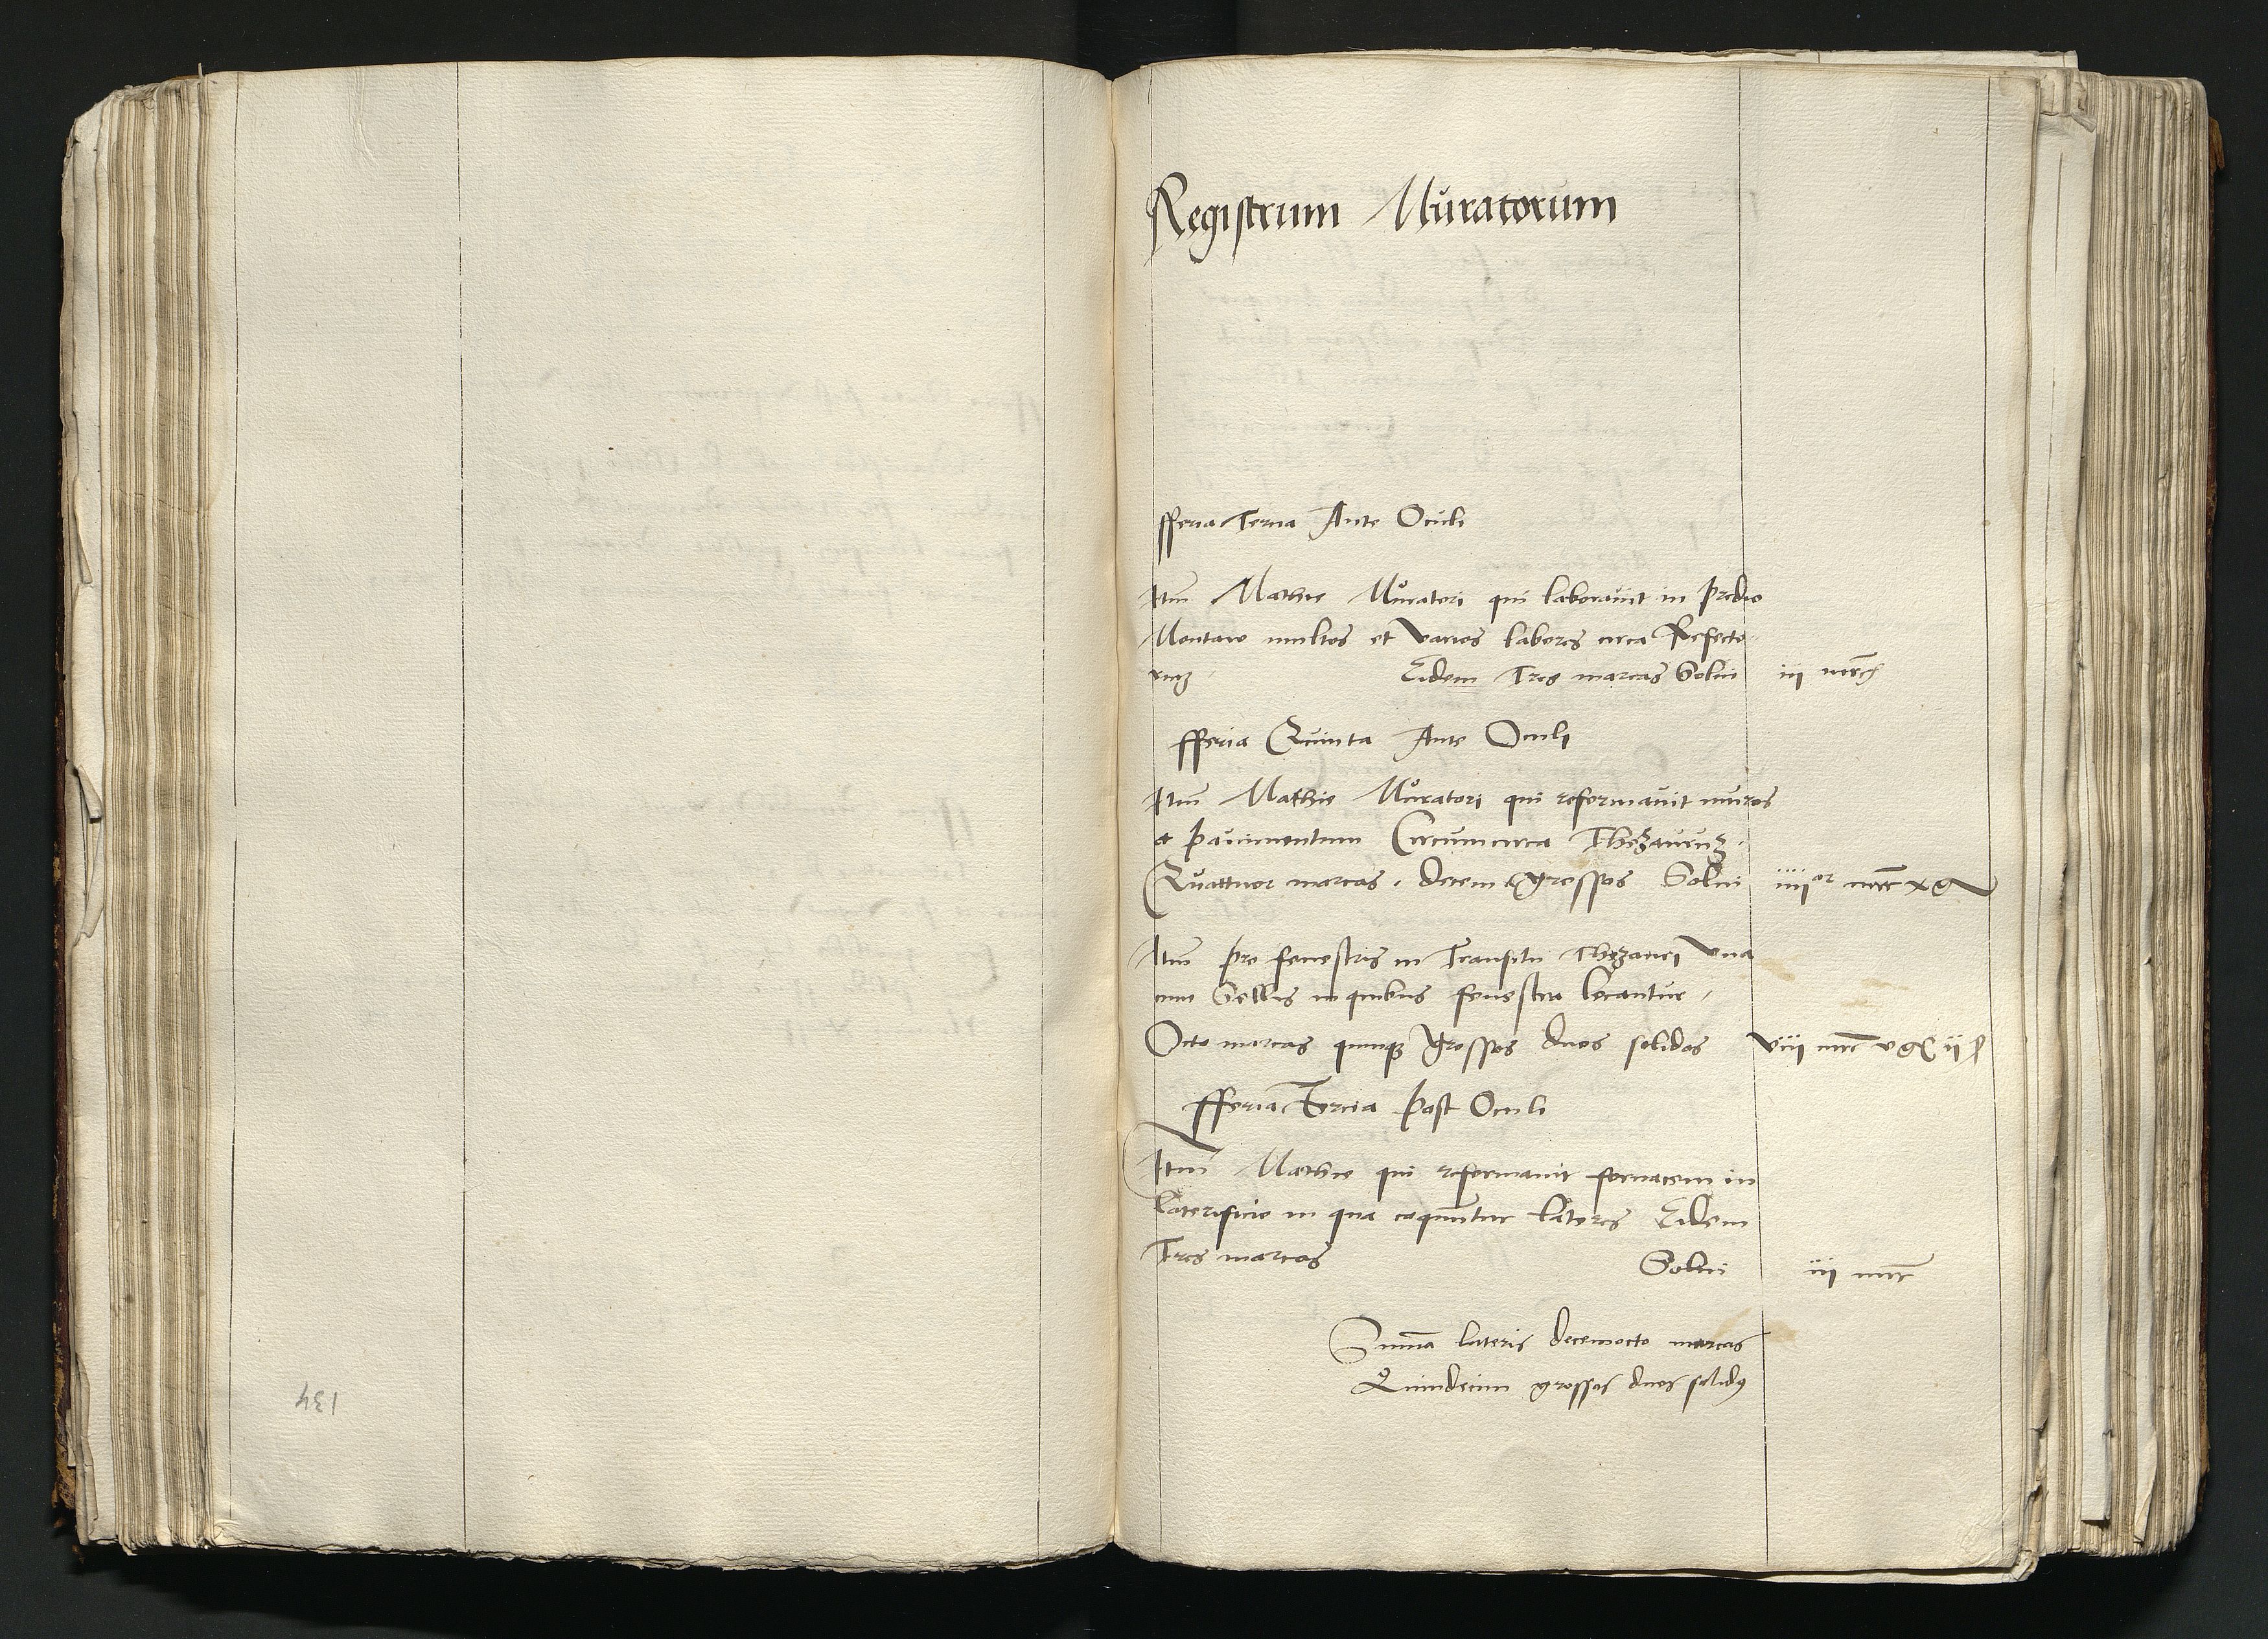 Registrum Muratorum
fferia Tercia Ante Oculi
Itm Mathie Muratori qui laboravit in predio
Montawo multos et varios labores circa Refecto
rium Eidem Tres marcas Solvi iii mrc
fferia Quinta Ante Oculi
Itm Mathie Muratori qui reformavit muros
a pavimentum Circumcirca Thezaurum
Quattuor marcas decem grossos Solvi iiiior mrc x g
Itm pro fenestris in Transitu Thezauri una
cum Sellis in quibus fenestra locantur
Octo marcas quinque grossos duos solidos viii mrc v g ii ß
fferia Tercia post Oculi
Itm Mathie qui reformavit fornacem in
laterificio in qua coquuntur lateres Eidem
Tres marcas Solvi iii mrc
Summa lateris decemocto marcas
Quindecim grossos duos solidos
134